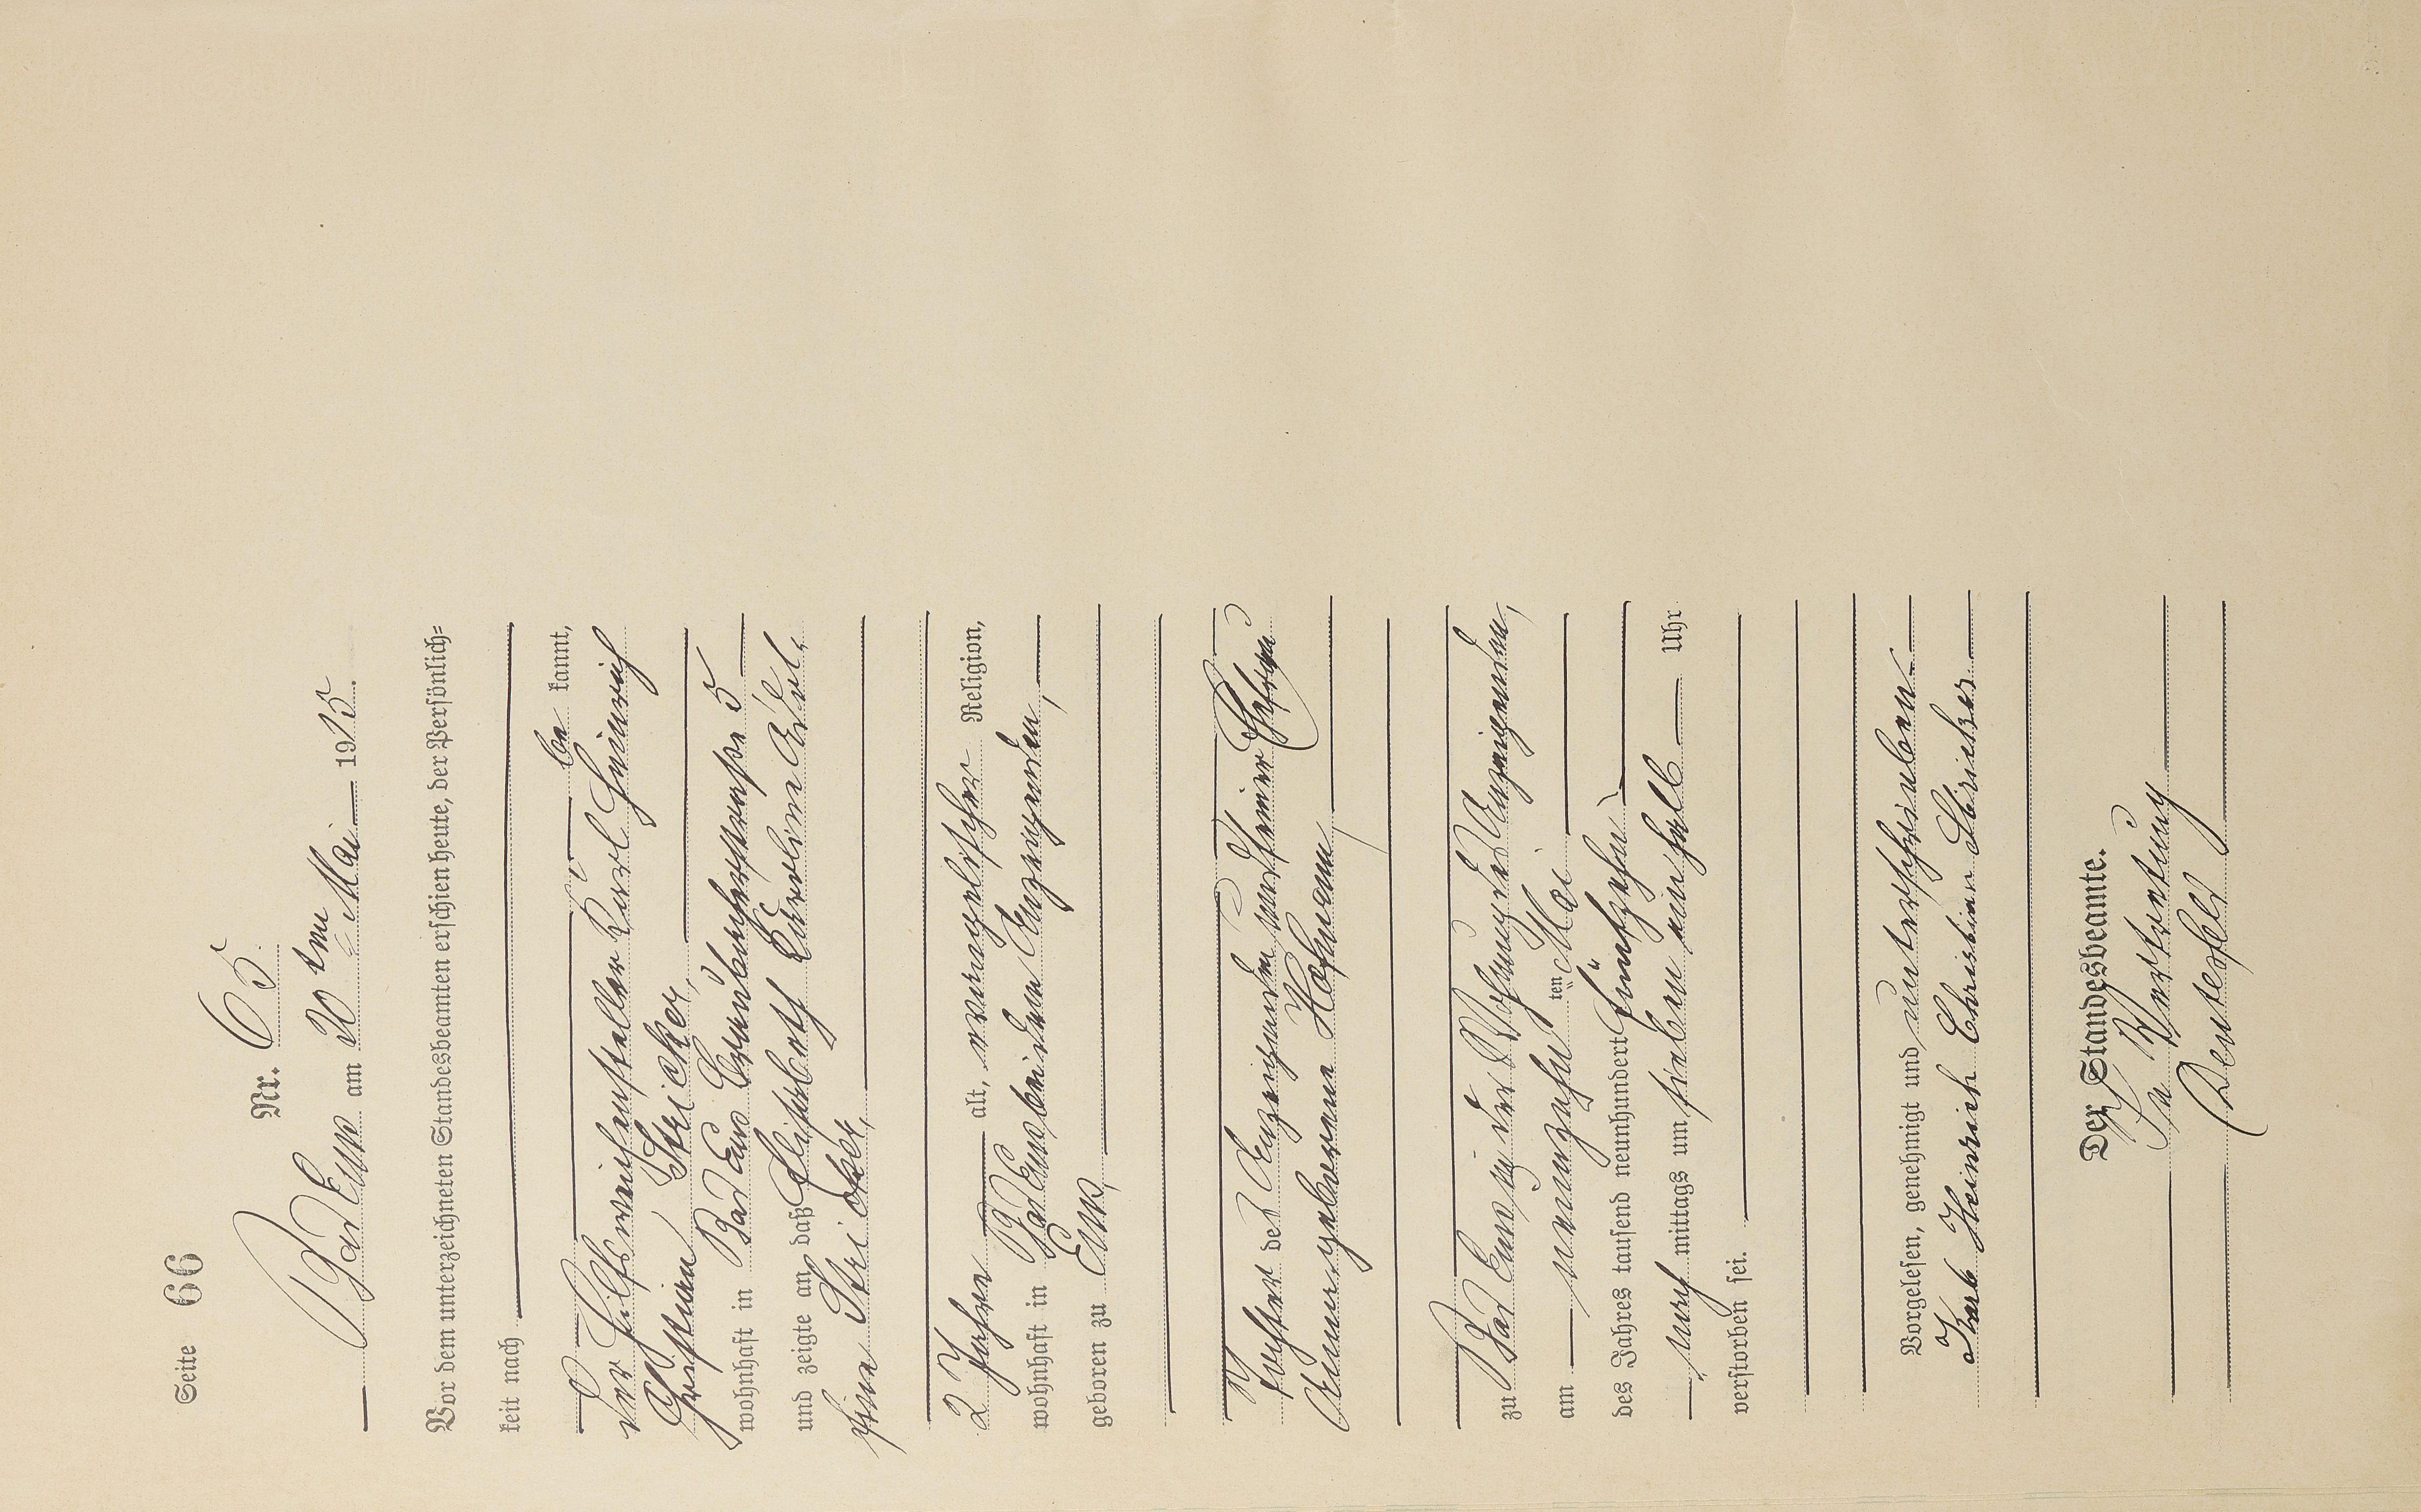 Seite 66
Nr. 65
Bad Ems am 20ten Mai 1915.
Vor dem unterzeichneten Standesbeamten erschien heute, der Persönlich=
keit nach
be kannt,
der Hilfsweichensteller Karl Heinrich
Christian Stricker,
wohnhaft in Bad Ems Braubacherstrasse 5
und zeigte an, daß Elisabeth Karoline
Stricker,
2 Jahre alt, evangelischer Religion,
wohnhaft in Bad Ems bei dem Anzeigenden,
geboren zu Ems,
Tochter des Anzeigenden und seiner Ehefrau
Anna geborene Hofmann,
zu Bad Ems in der Wohnung des Anzeigenden,
am neunzehnten Mai
des Jahres tausend neunhundert fünfzehn
nach mittags um sieben einhalb Uhr
verstorben sei.
Vorgelesen, genehmigt und unterschrieben
Karl Heinrich Christian Stricker
Der Standesbeamte.
In Vertretung